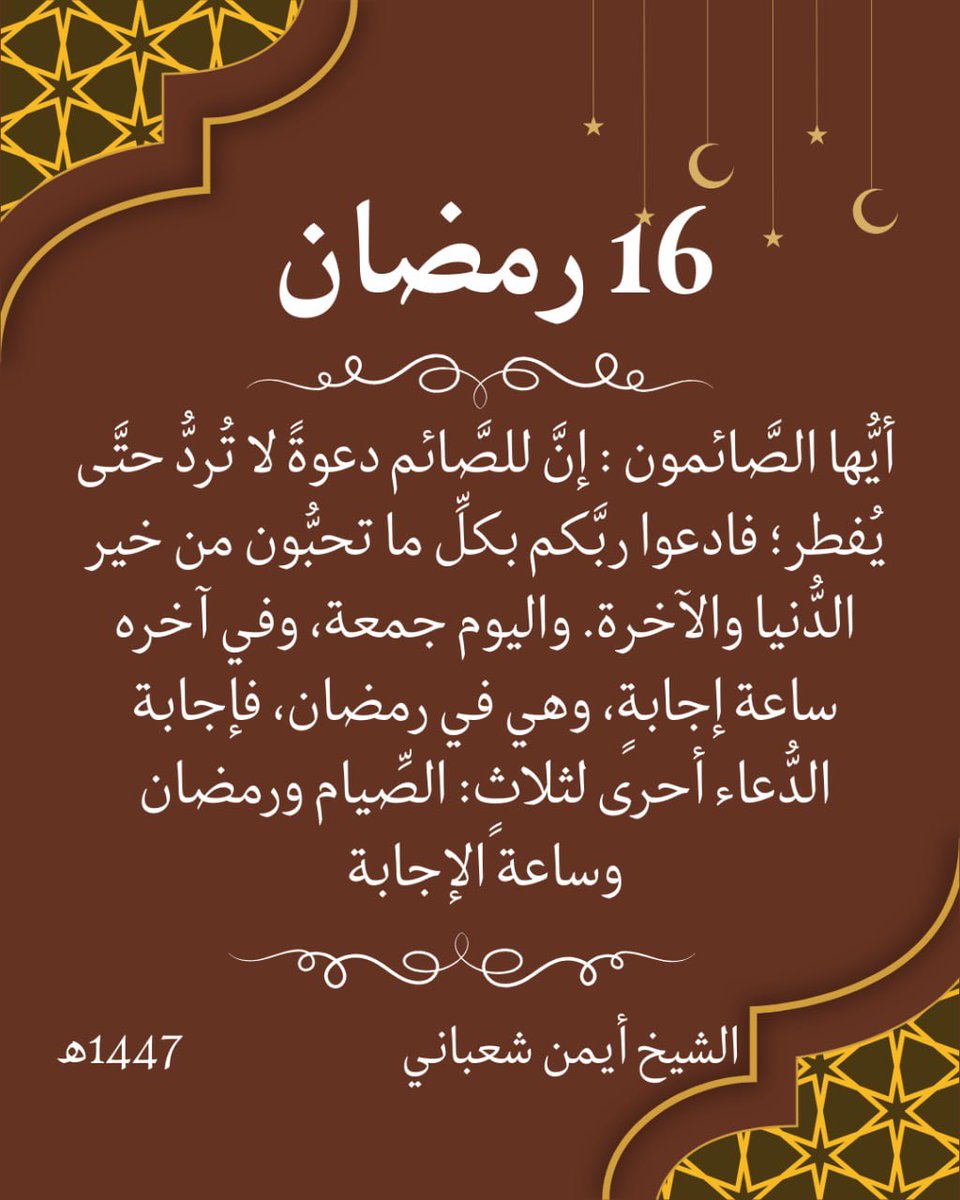 16 رمضان
أيُّها الصَّائمون : إنَّ للصَّائم دعوةً لا تُردُّ حتَّى
يُفطر؛ فادعوا ربَّكم بكلِّ ما تحبُّون من خير
الدُّنيا والآخرة. واليوم جمعة، وفي آخره
ساعة إجابةٍ، وهي في رمضان، فإجابة
الدُّعاء أحرى لثلاثٍ: الصِّيام ورمضان
وساعةً الإجابة
الشيخ أيمن شعباني
1447هـ